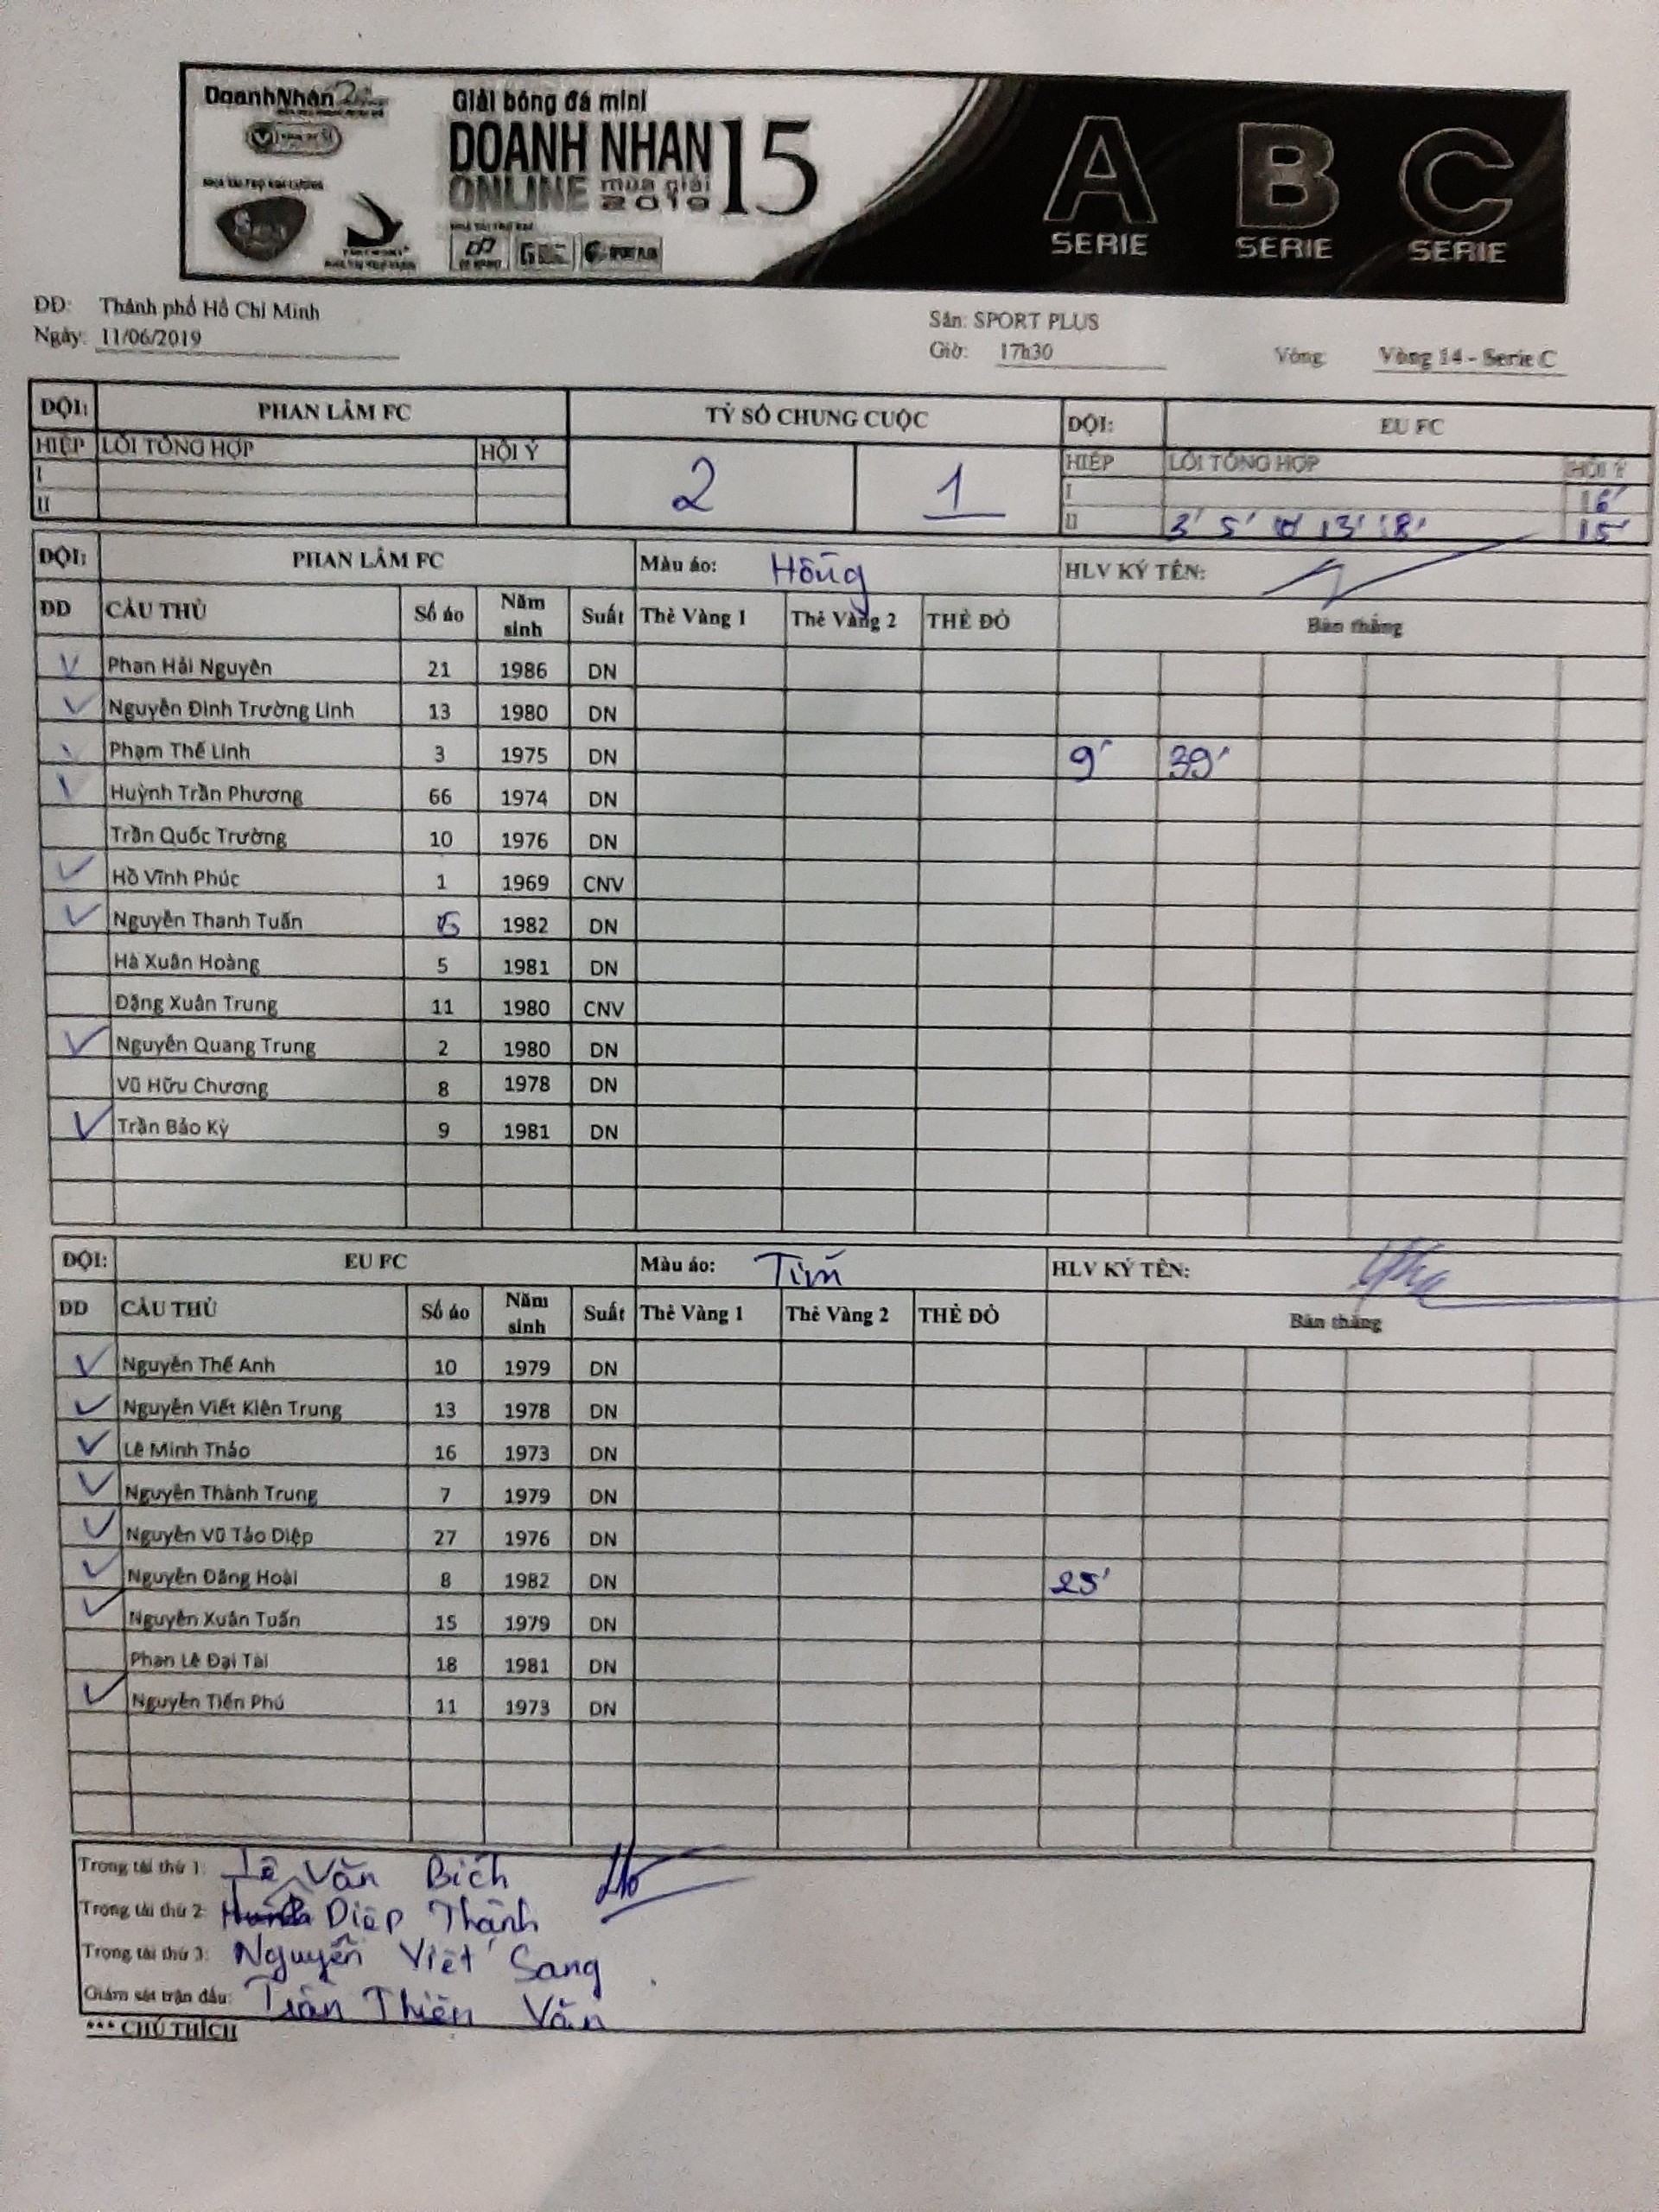 DoanhNhân
Giải bóng đá mini
DOANH NHAN 15
ONLINE mùa giải 2019
A SERIE
B SERIE
C SERIE
DD: Thành phố Hồ Chí Minh
Ngày: 11/06/2019
Sân: SPORT PLUS
Giờ: 17h30 Vòng Vòng 14 - Serie C
ĐỘI: PHAN LÂM FC TỶ SỐ CHUNG CUỘC ĐỘI: EU FC
HIỆP LỖI TỔNG HỢP HỘI Ý 2 1 HIỆP LỖI TỔNG HỢP HỘI Ý
I I 16'
II II 3' 5' 13' 18' 15'
ĐỘI: PHAN LÂM FC Màu áo: Hồng HLV KÝ TÊN:
DD CẦU THỦ Số áo Năm sinh Suất Thẻ Vàng 1 Thẻ Vàng 2 THẺ ĐỎ Bàn thắng
Phan Hải Nguyên 21 1986 DN
Nguyễn Đình Trường Linh 13 1980 DN
Phạm Thế Linh 3 1975 DN 9' 39'
Huỳnh Trần Phương 66 1974 DN
Trần Quốc Trường 10 1976 DN
Hồ Vĩnh Phúc 1 1969 CNV
Nguyễn Thanh Tuấn 1982 DN
Hà Xuân Hoàng 5 1981 DN
Đặng Xuân Trung 11 1980 CNV
Nguyễn Quang Trung 2 1980 DN
Vũ Hữu Chương 8 1978 DN
Trần Bảo Kỳ 9 1981 DN
ĐỘI: EU FC Màu áo: Tím HLV KÝ TÊN:
DD CẦU THỦ Số áo Năm sinh Suất Thẻ Vàng 1 Thẻ Vàng 2 THẺ ĐỎ Bàn thắng
Nguyễn Thế Anh 10 1979 DN
Nguyễn Viết Kiên Trung 13 1978 DN
Lê Minh Thảo 16 1973 DN
Nguyễn Thành Trung 7 1979 DN
Nguyễn Vũ Tảo Diệp 27 1976 DN
Nguyễn Đăng Hoài 8 1982 DN 25'
Nguyễn Xuân Tuấn 15 1979 DN
Phan Lê Đại Tài 18 1981 DN
Nguyễn Tiến Phú 11 1973 DN
Trọng tài thứ 1: Lê Văn Bích
Trọng tài thứ 2: Diệp Thành
Trọng tài thứ 3: Nguyễn Viết Sang
Giám sát trận đấu: Trần Thiên Văn
*** CHÚ THÍCH